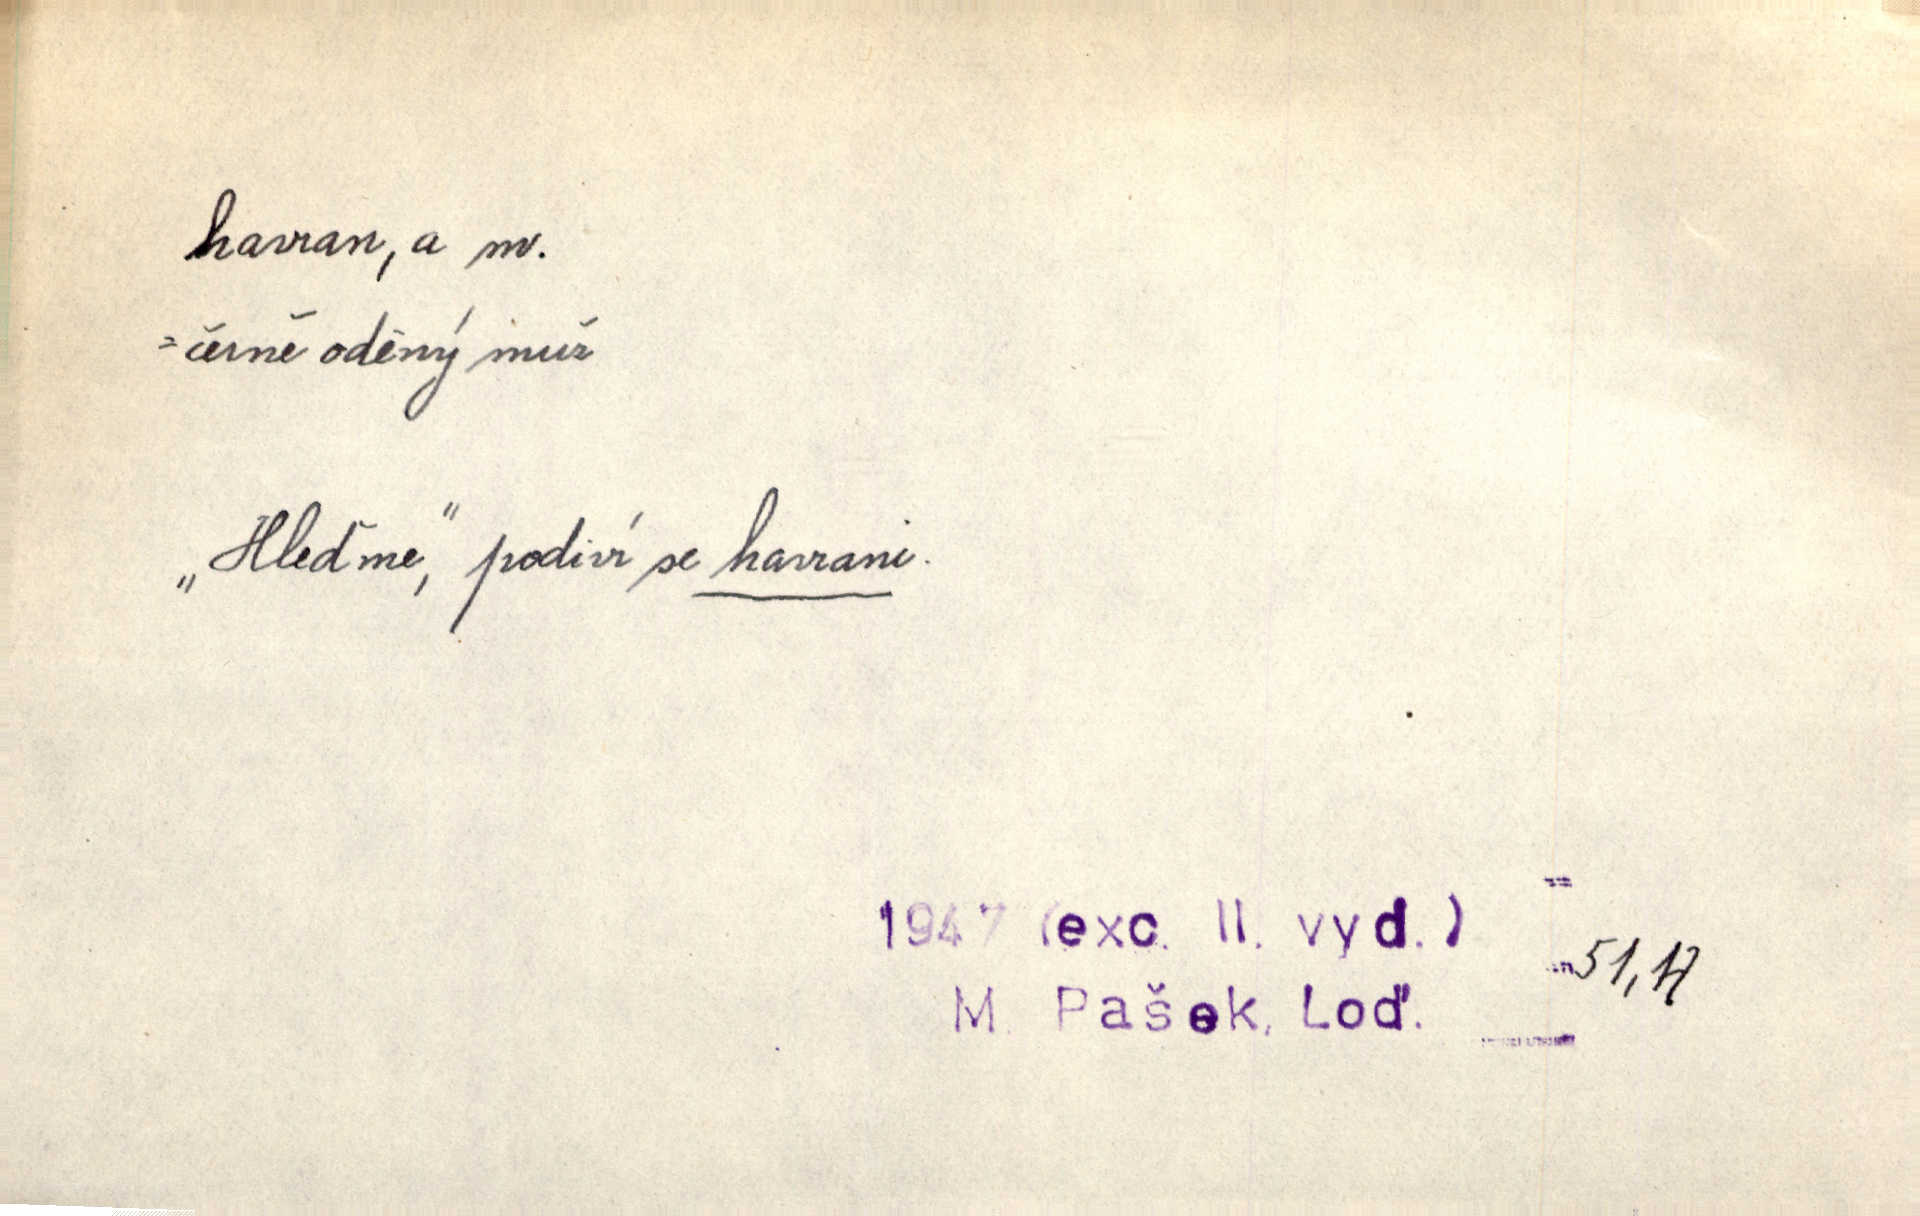 havran, a m.
=černě oděný muž
„Hleďme,“ podiví se havrani.
1947 (exc. II. vyd.)
M. Pašek, Loď.
51,